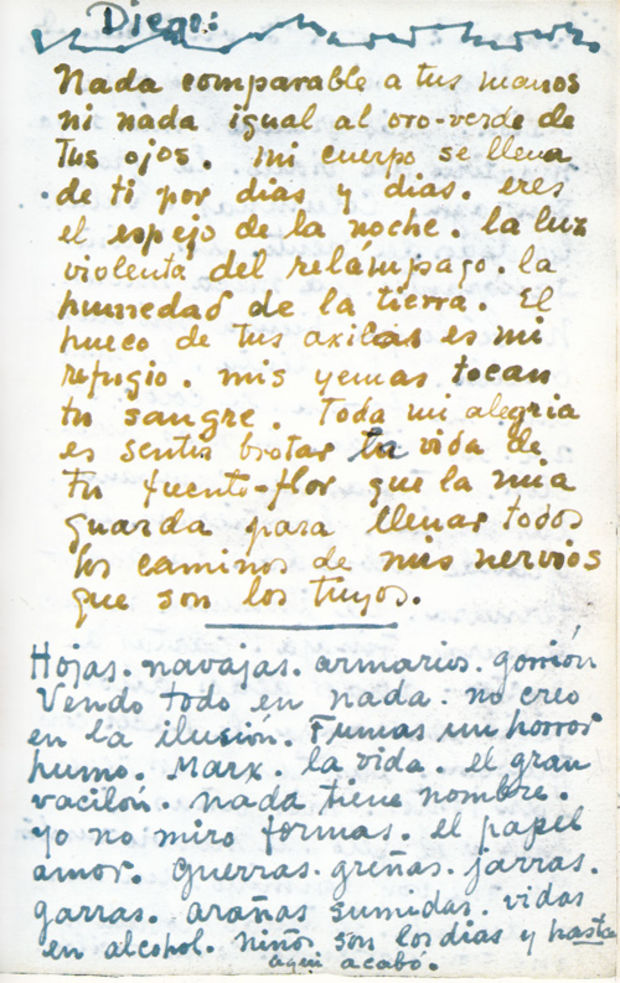 Diego:
Nada comparable a tus manos
ni nada igual al oro-verde de
tus ojos. mi cuerpo se llena
de ti por dias y dias. eres
el espejo de la noche. la luz
violenta del relámpago. la
humedad de la tierra. El
hueco de tus axilas es mi
refugio. mis yemas tocan
tu sangre. Toda mi alegria
es sentir brotar tu vida de
tu fuente-flor que la mia
guarda para llenar todos
los caminos de mis nervios
que son los tuyos.
Hojas. navajas. armarios. gorrión
Vendo todo en nada. no creo
en la ilusión. Fumas un horror
humo. Marx. la vida. el gran
vacilón. nada tiene nombre.
yo no miro formas. el papel
amor. guerras. greñas. jarras.
garras. arañas sumidas. vidas
en alcohol. niños son los dias y hasta
aqui acabó.